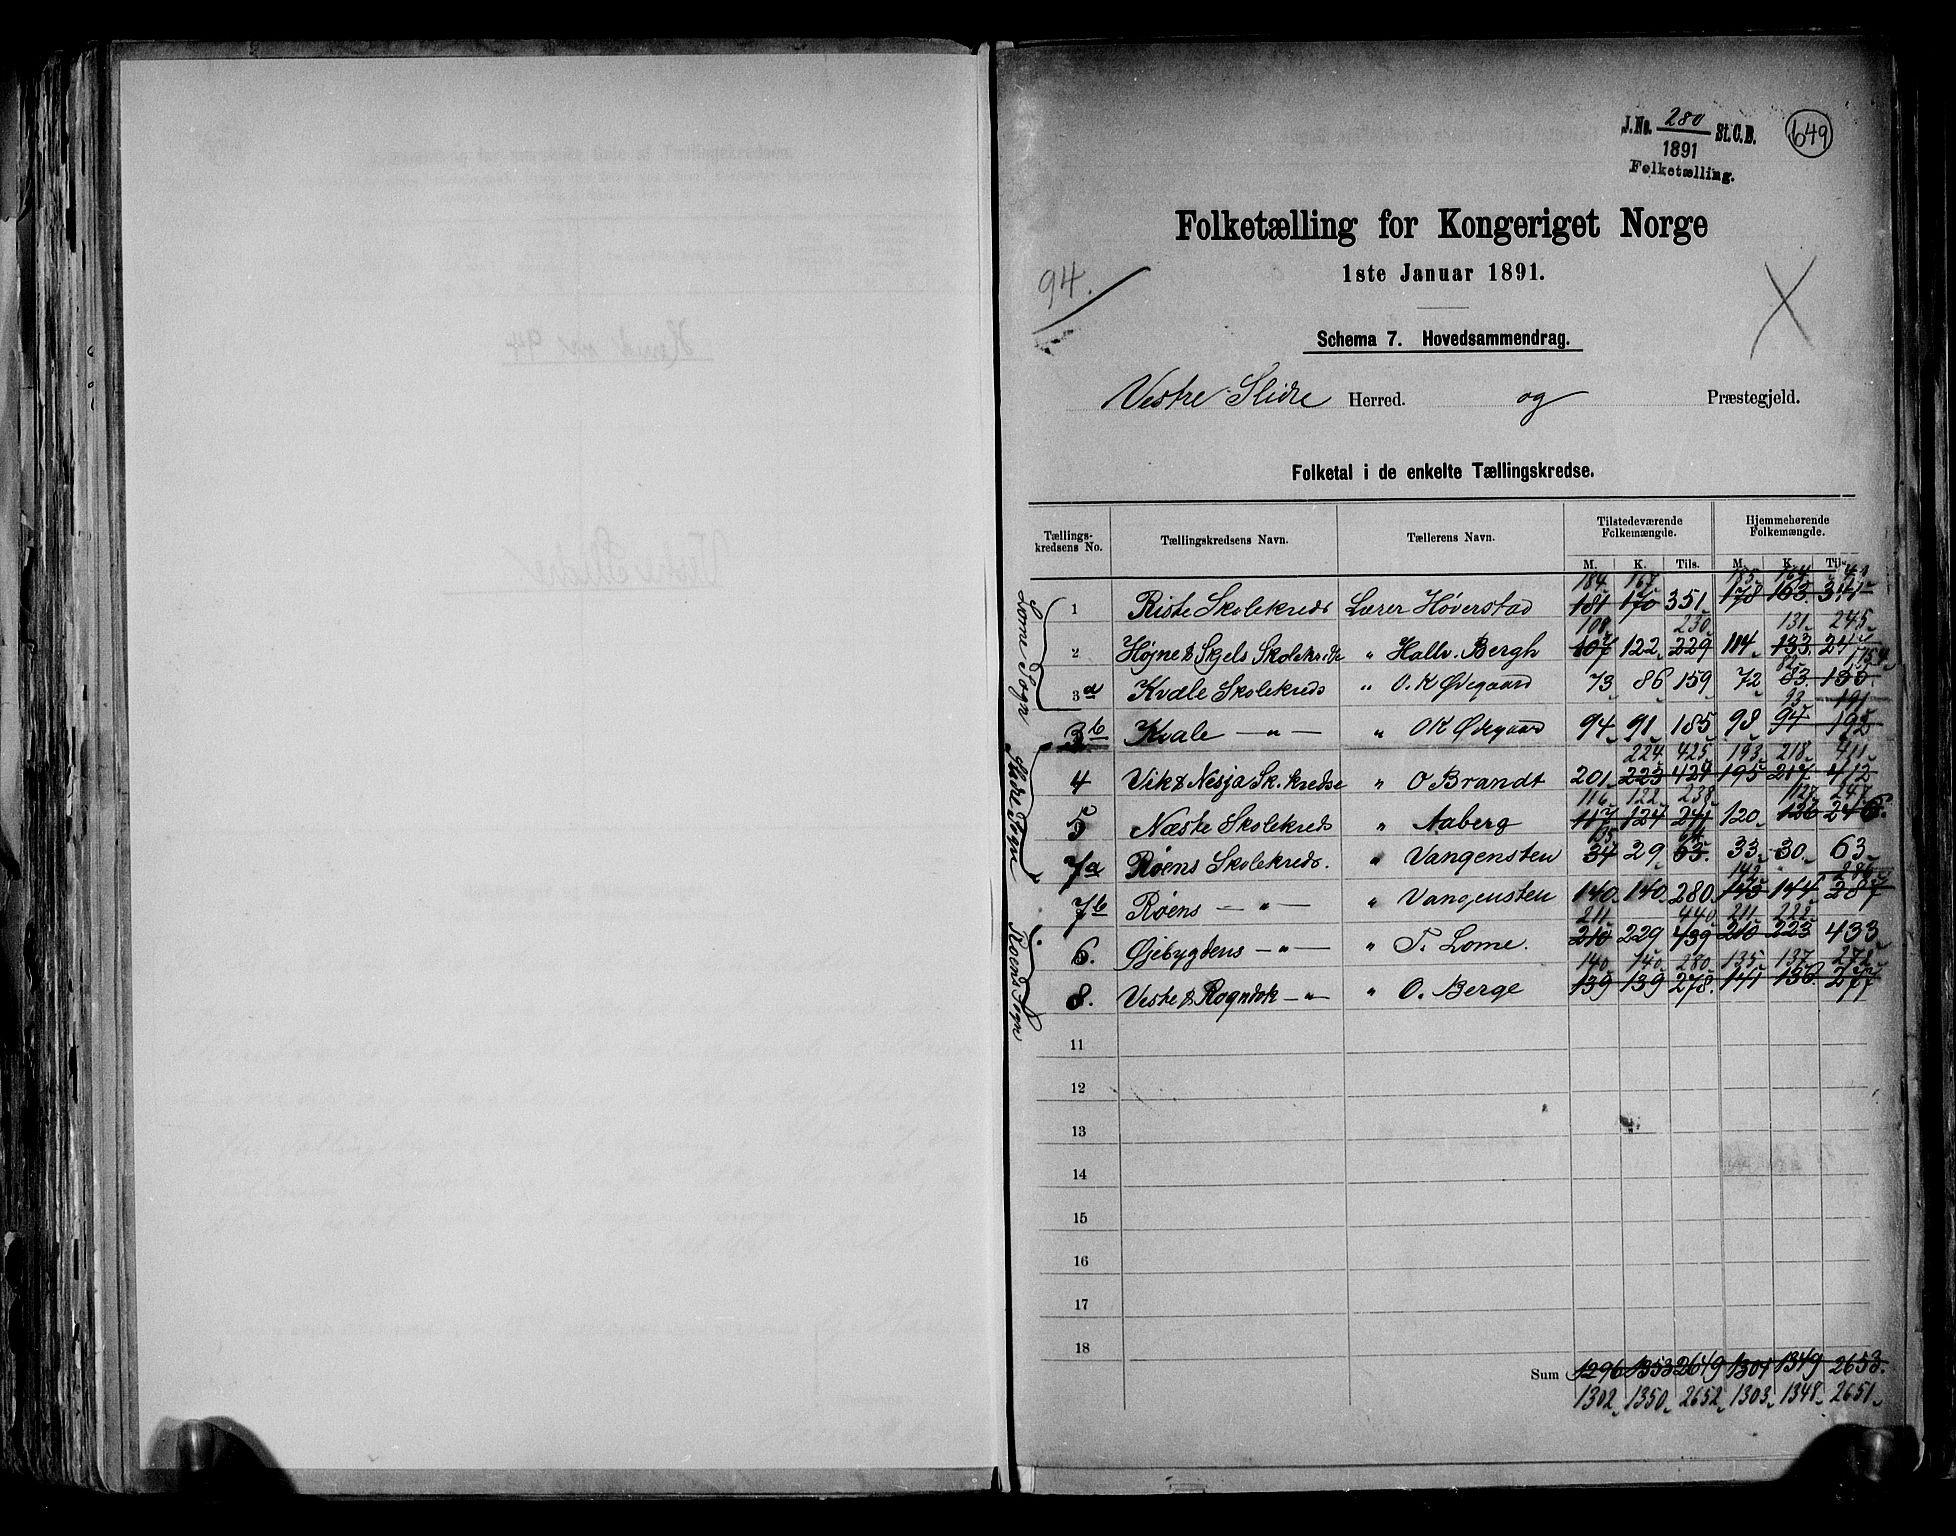 J.No. 280 St.C.B.
1891
Folketælling.
649
Folketælling for Kongeriget Norge
1ste Januar 1891.
94.
Schema 7. Hovedsammendrag.
Vestre Slidre Herred. og Præstegjeld.
Folketal i de enkelte Tællingskredse.
Tællings-kredsens No. Tællingskredsens Navn. Tællerens Navn. Tilstedeværende Folkemængde. Hjemmehørende Folkemængde.
M. K. Tils. M. K. Tils.
184 167 183 164
1 Riste Skolekreds Lærer Høverstad 181 170 351 178 163 341
108 230 131 245
2 Højne & Skolekredse " Hallv. Bergh 107 122 229 114 133 247
82 154
3a Kvale Skolekreds " O. K Øvegaard 73 86 159 72 83
93 191
3b Kvale — " — " O K Øvegaard 94 91 185 98 94 192
224 425 193 218 411
4 Vik & Nesja Sk. kredse " O Brandt 201 223 424 195 217 412
116 122 238 248
5 Næste Skolekreds " Aaberg 117 124 241 120 126 246
35 64
7a Røens Skolekreds. " Vangensten 34 29 63 33 30 63
142 286
7b Røens — " — " Vangensten 140 140 280 143 144 287
211 440 211 222
6. Øjebygdens — " — " T. Lome. 210 229 439 210 223 433
140 140 280 135 137 272
8. Veste & Rogndok — " — " O. Berge 139 139 278 141 136 277
Lome Sogn
Slidre Sogn
Røens Sogn
11
12
13
14
15
16
17
18
Sum 1296 1353 2649 1304 1349 2653
1302 1350 2652 1303 1348 2651